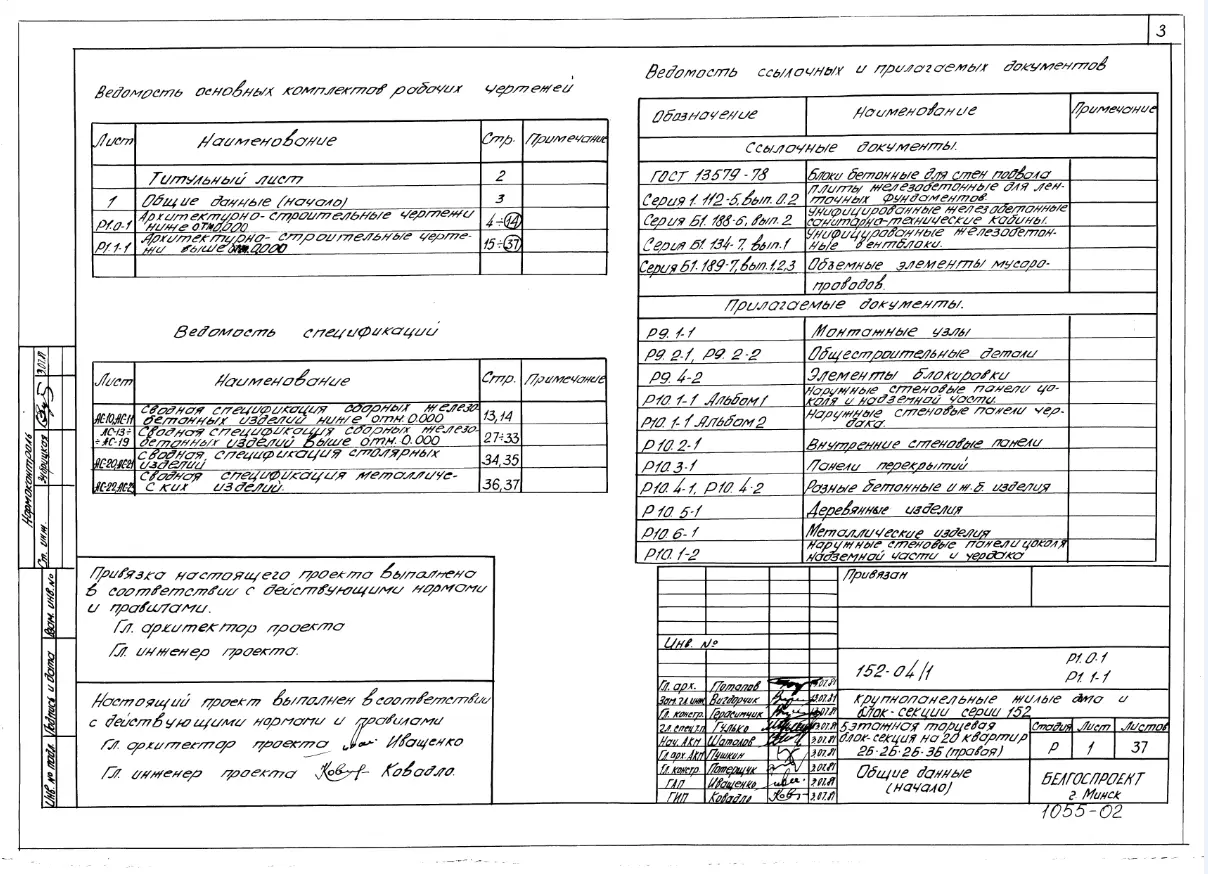 3
Ведомость основных комплектов рабочих чертежей
Лист Наименование Стр. Примечание
Титульный лист 2
1 Общие данные (начало) 3
Р1.0-1 Архитектурно-строительные чертежи
ниже отм.0.000 4÷14
Р1.1-1 Архитектурно-строительные черте-
жи выше отм.0.000 15÷37
Ведомость спецификаций
Лист Наименование Стр. Примечание
АС-10,АС-11 Сводная спецификация сборных железо-
бетонных изделий ниже отм. 0.000 13,14
АС-13÷
÷АС-19 Сводная спецификация сборных железо-
бетонных изделий выше отм. 0.000 27÷33
АС-20,АС-21 Сводная спецификация столярных
изделий 34,35
АС-22,АС-23 Сводная спецификация металличе-
ских изделий. 36,37
Привязка настоящего проекта выполнена
в соответствии с действующими нормами
и правилами.
Гл. архитектор проекта
Гл. инженер проекта.
Настоящий проект выполнен в соответствии
с действующими нормами и правилами
Гл. архитектор проекта Иващенко
Гл. инженер проекта Ковадло.
Ведомость ссылочных и прилагаемых документов
Обозначение Наименование Примечание
Ссылочные документы.
ГОСТ 13579-78 Блоки бетонные для стен подвала
Серия 1.112-5, вып. 0.2 Плиты железобетонные для лен-
точных фундаментов.
Серия Б1.188-6, вып. 2 Унифицированные железобетонные
санитарно-технические кабины.
Серия Б1.134-7, вып.1 Унифицированные железобетон-
ные вентблоки.
Серия Б1.189-7, вып.1,2,3 Объемные элементы мусоро-
проводов.
Прилагаемые документы.
Р9.1-1 Монтажные узлы
Р9.2-1, Р9.2-2 Общестроительные детали
Р9.4-2 Элементы блокировки
Р10.1-1 Альбом 1 Наружные стеновые панели цо-
коля и надземной части.
Р10.1-1 Альбом 2 Наружные стеновые панели чер-
дака.
Р10.2-1 Внутренние стеновые панели
Р10.3-1 Панели перекрытий
Р10.4-1, Р10.4-2 Разные бетонные и ж.б. изделия
Р10.5-1 Деревянные изделия
Р10.6-1 Металлические изделия
Р10.1-2 Наружные стеновые панели цоколя
надземной части и чердака
Привязан
Инв. №
152-04/1
Р1.0-1
Р1.1-1
Гл. арх. Потапов 3.07.81
Зам.гл.инж. Вигдорчик 3.07.81
Гл. констр. Герасимчук 3.07.81
Гл.спец.т.п Гулько 3.07.81
Нач. АКМ Шатолов 3.07.81
Гл.арх.АКМ Пушкин 3.07.81
Гл.констр. Потерщук 3.07.81
ГАП Иващенко 3.07.81
ГИП Ковадло 3.07.81
Крупнопанельные жилые дома и
блок-секции серии 152
5 этажная торцевая
блок-секция на 20 квартир
2Б-2Б-2Б-3Б (правая)
Стадия Лист Листов
Р 1 37
Общие данные
(начало)
БЕЛГОСПРОЕКТ
г Минск
1055-02
Нормоконтроль
Ст. инж. Зубрицкая 3.07.81
Инв № подл. Подпись и дата Взам. инв.№